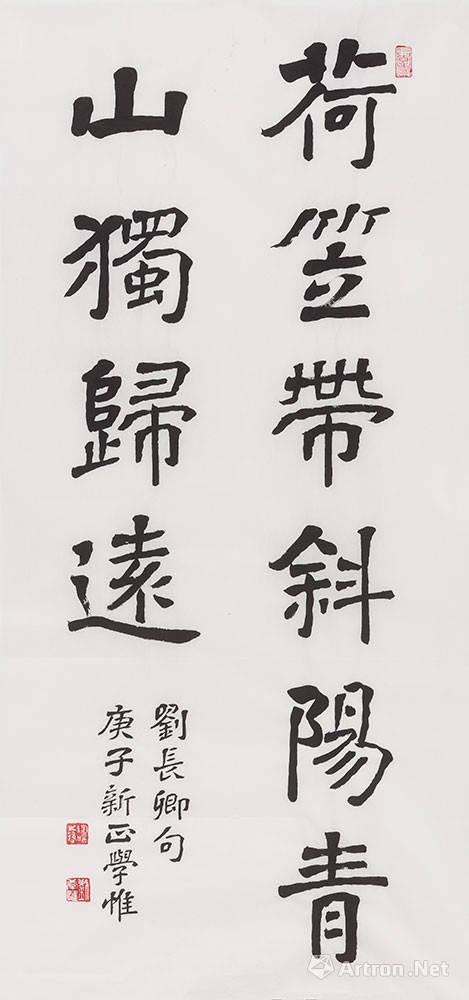 荷笠帶斜陽青
山獨歸遠
劉長卿句
庚子新正學惟
Artron.Net